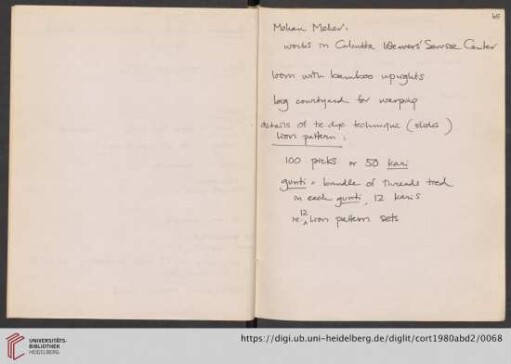 65
Mohan Meher:
works in Calcutta Weavers' Service Center
loom with bamboo uprights
big courtyard for warping
details of tie-dye technique (slides)
lion pattern:
100 picks or 50 kari
gunti = bundle of threads tied
in each gunti, 12 karis
12
ie. ^ lion pattern sets
UNIVERSITÄTS-
BIBLIOTHEK
HEIDELBERG
https://digi.ub.uni-heidelberg.de/diglit/cort1980abd2/0068